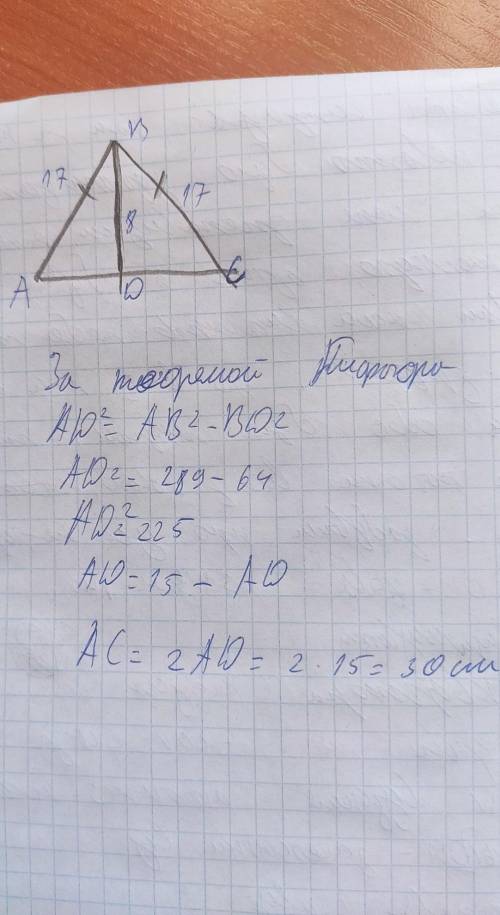 B
17
17
8
A
D
C
За теоремой Пифагора
AD²= AB²-BD²
AD²= 289-64
AD²=225
AD=15 - AD
AC= 2AD= 2·15= 30см